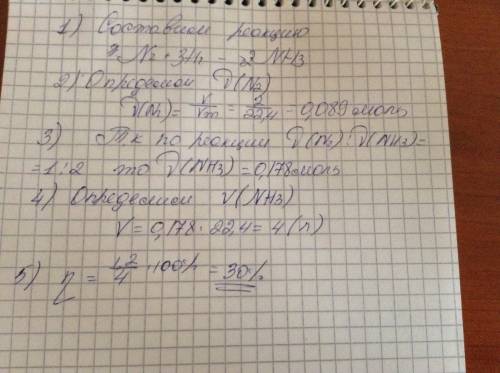 1) Составим реакцию
N₂ + 3H₂ = 2NH3
2) Определим ν(N₂)
ν(N₂) = V/Vm = 2/22,4 = 0,089 моль
3) Тк по реакции ν(N₂) : ν(NH3) =
= 1:2 то ν(NH3) = 0,178 моль
4) Определим V(NH3)
V = 0,178 · 22,4 = 4 (л)
5) η = 1,2/4 · 100% = 30%